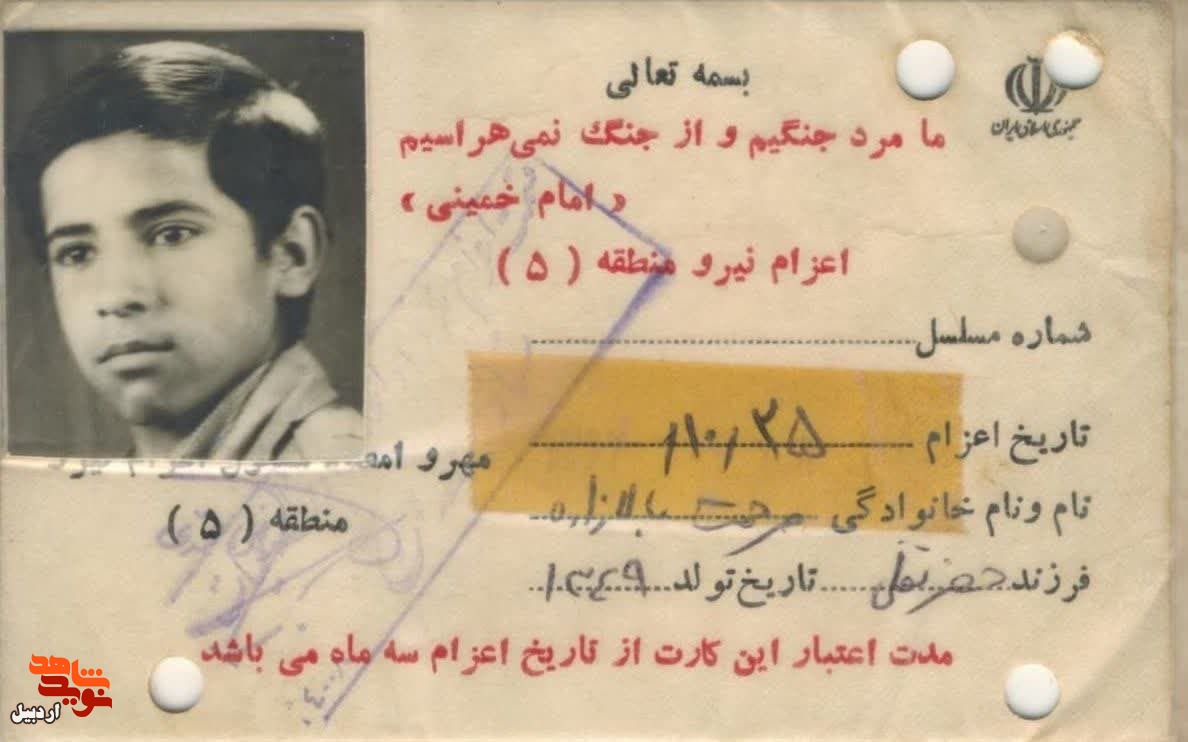 بسمه تعالی
جمهوری اسلامی ایران
ما مرد جنگیم و از جنگ نمی‌هراسیم
« امام خمینی »
اعزام نیرو منطقه ( ۵ )
شماره مسلسل
تاریخ اعزام ۲۵ /۱۰/
نام و نام خانوادگی مرحمت بالازاده
فرزند حضرتقلی تاریخ تولد ۱۳۴۹
مهر و امضاء مسئول اعزام نیرو
منطقه ( ۵ )
مدت اعتبار این کارت از تاریخ اعزام سه ماه می باشد
نوید شاهد
اردبیل